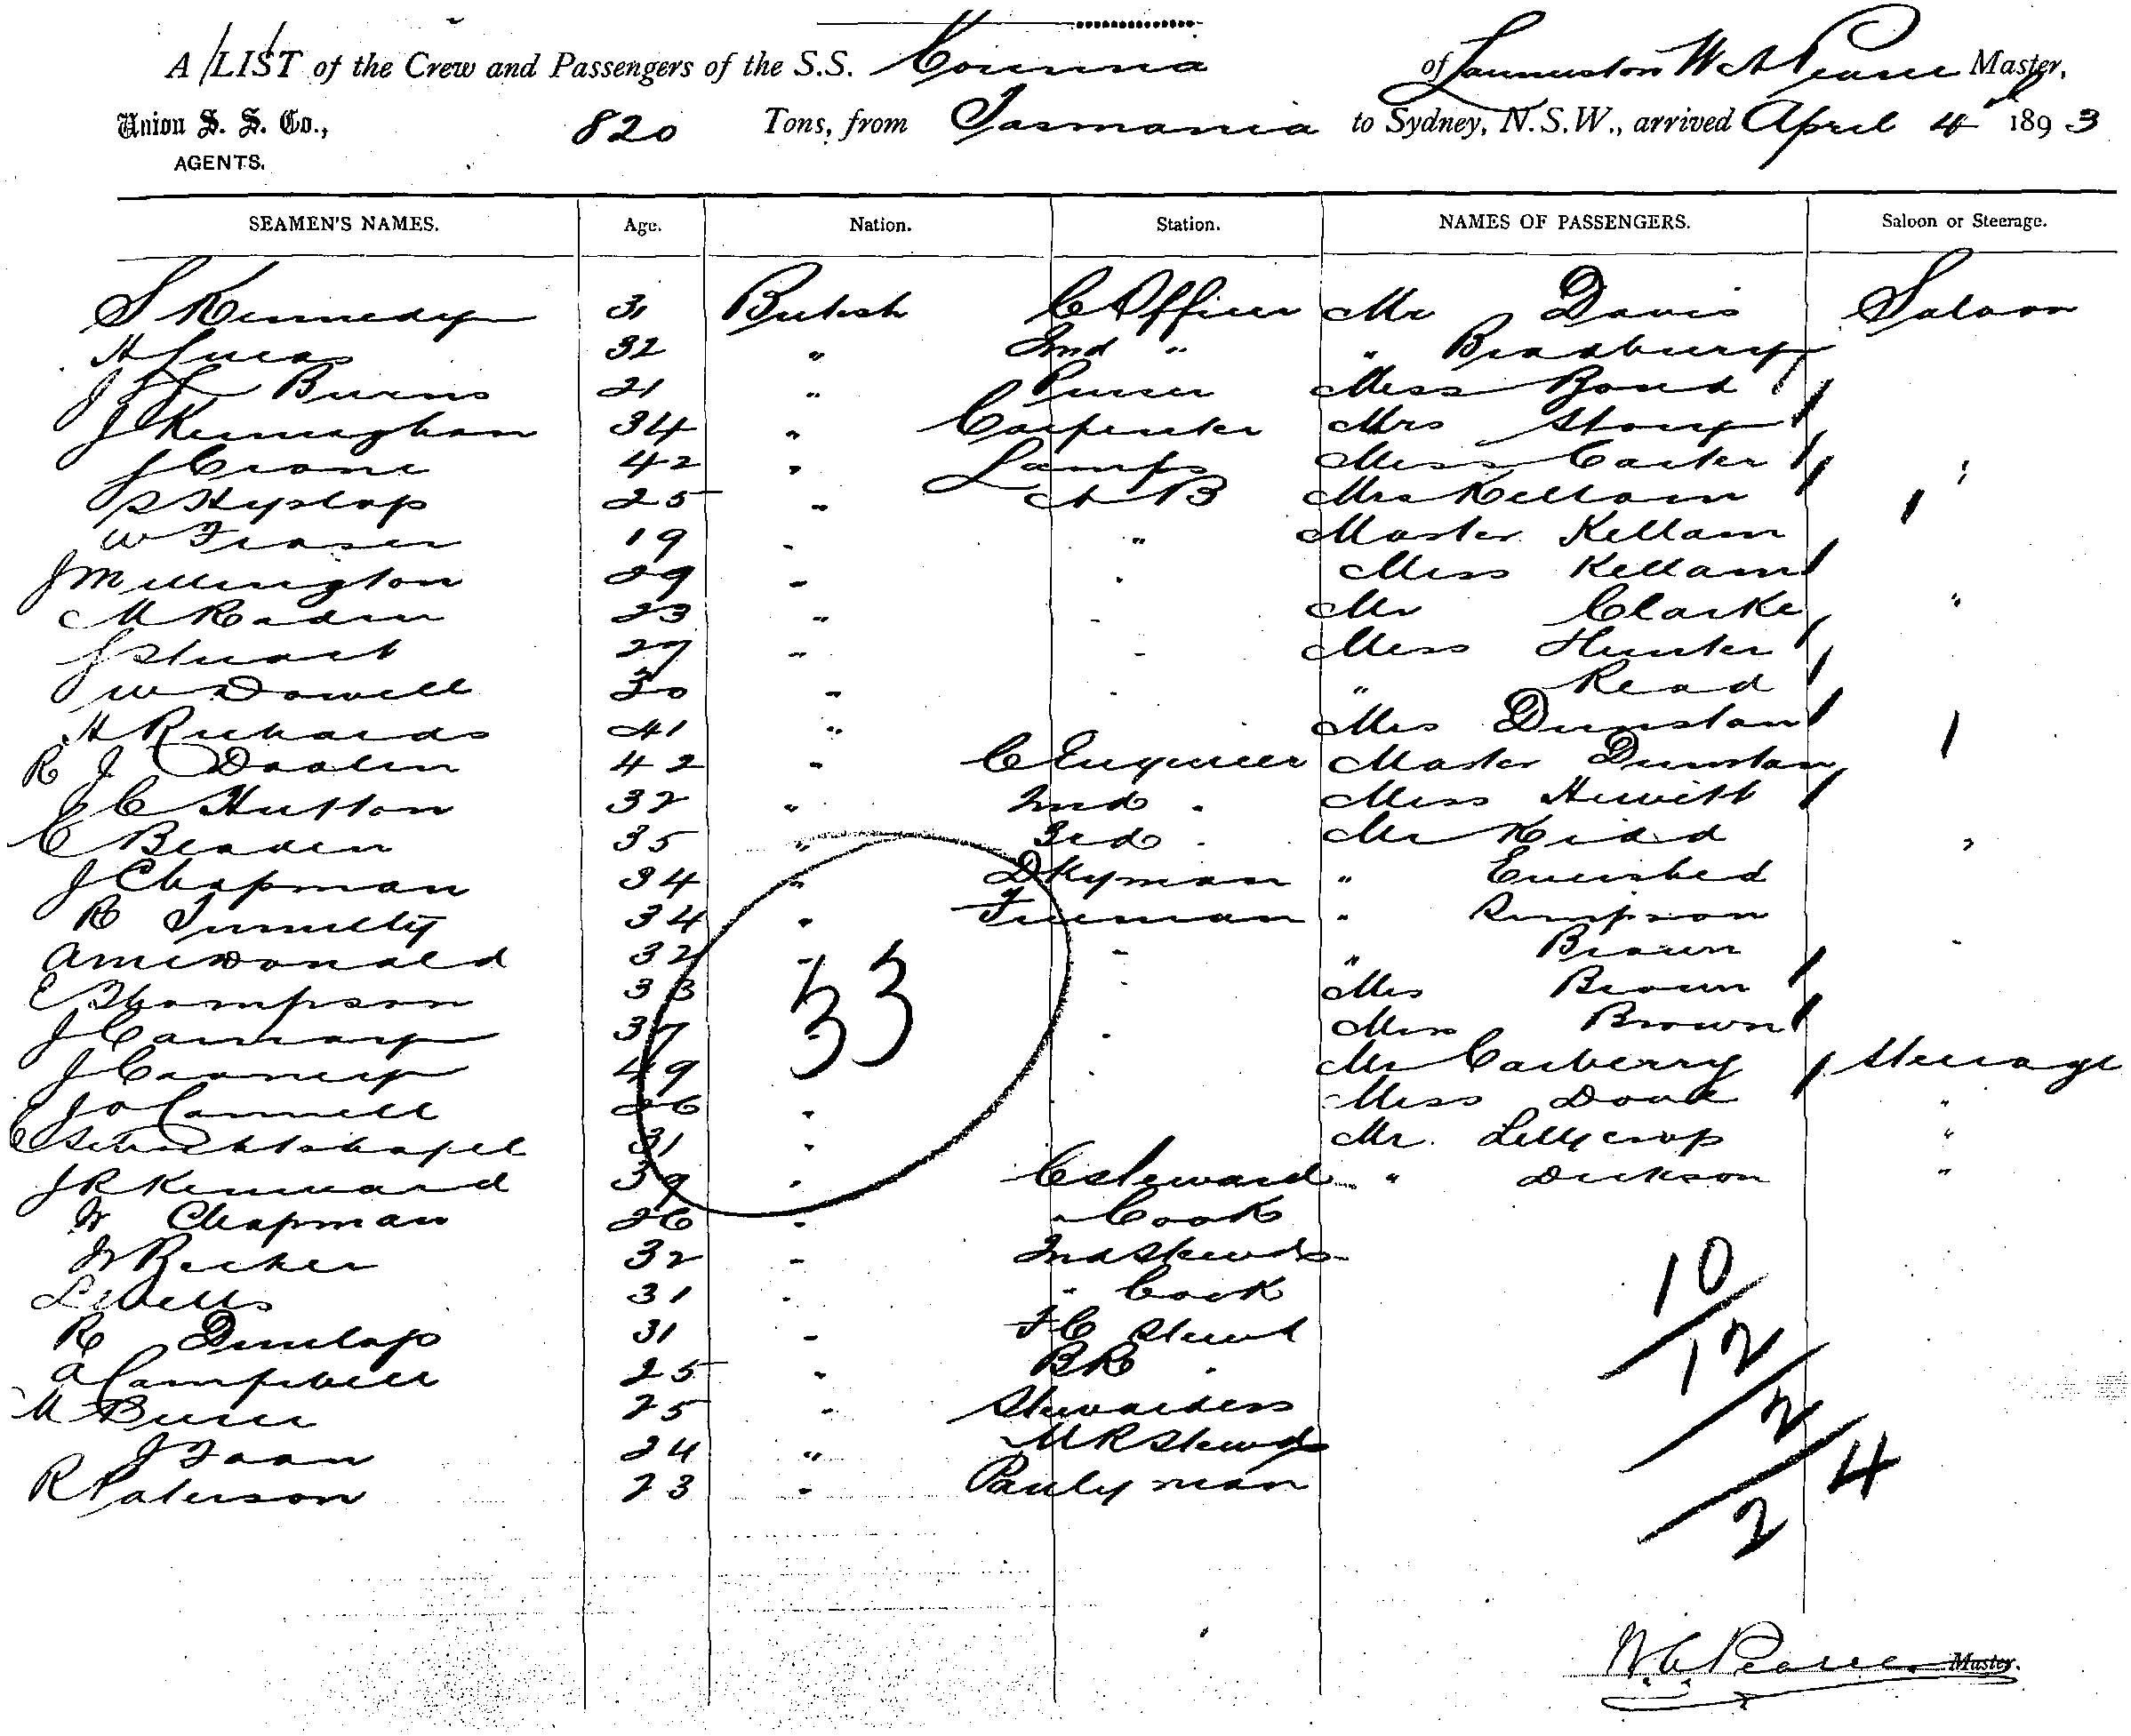 A LIST of the Crew and Passengers of the S.S. Corinna of Launceston W A Pearce Master,
Union S. S. Co., 820 Tons, from Tasmania to Sydney, N.S.W., arrived April 4th 1893
AGENTS.
SEAMEN'S NAMES. Age. Nation. Station. NAMES OF PASSENGERS. Saloon or Steerage.
S Kennedy 31 British C Officer Mr Davis Saloon
H Lucas 32 " 2nd " " Bradbury
J Burns 21 " Purser Miss Bond
J Kernaghan 34 " Carpenter Mrs Story
J Crane 42 " Lamps Miss Carter "
Hyslop 25 " A B Mrs Kellam
W Fraser 19 " " Master Kellam
J Millington 29 " " Miss Kellam
M 23 " " Mr Clarke "
J Stuart 27 " " Miss Hunter
W Dowell 30 " " " Read
H Richards 41 " Mrs Dunstan
R J Doolin 42 " C Engineer Master Dunstan
C Hutton 32 " 2nd " Miss Hewitt
C 35 " 3rd " Mr Kidd "
J Chapman 34 " Dkyman " Evershed
R Tumulty 34 " Fireman " Simpson
A McDonald 32 " " " Brown "
C Thompson 33 " " Mrs Brown
J 37 " " Miss Brown
J 49 " Mr Carberry Steerage
J O Connell 26 " " Miss "
C 31 " Mr. Lillycrop "
J R Kennard 39 " C Steward " Dickson "
W Chapman 26 " " Cook
W Becker 32 " 2nd Stewd
L Wells 31 " " Cook
R Dunlop 31 " F C Stewd
A Campbell 25 " B R "
M 25 " Stewardess
J 24 " M R Stewd
R Paterson 23 " Pantryman
33
10
12
2
4
2
W. A. Pearce Master.